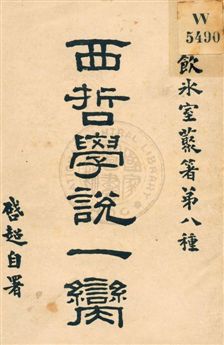 W
5490
飲冰室叢著第八種
西哲學說一臠
啓超自署